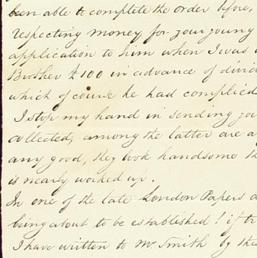 been able to complete the order before,
respecting money for your young
application to him when I was
Brother £100 in advance of divid
which of course he had complied
I stop my hand in sending you
collected, among the latter are a
any good, they look handsome th
is nearly worked up.
In one of the late London Papers a
being about to be established! if tr
I have written to Mr Smith by the